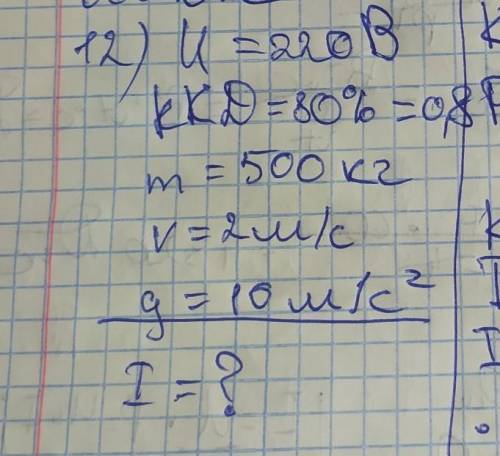 12) U = 220В
ККД = 80% = 0,8
m = 500 кг
v = 2 м/с
g = 10 м/с²
I = ?